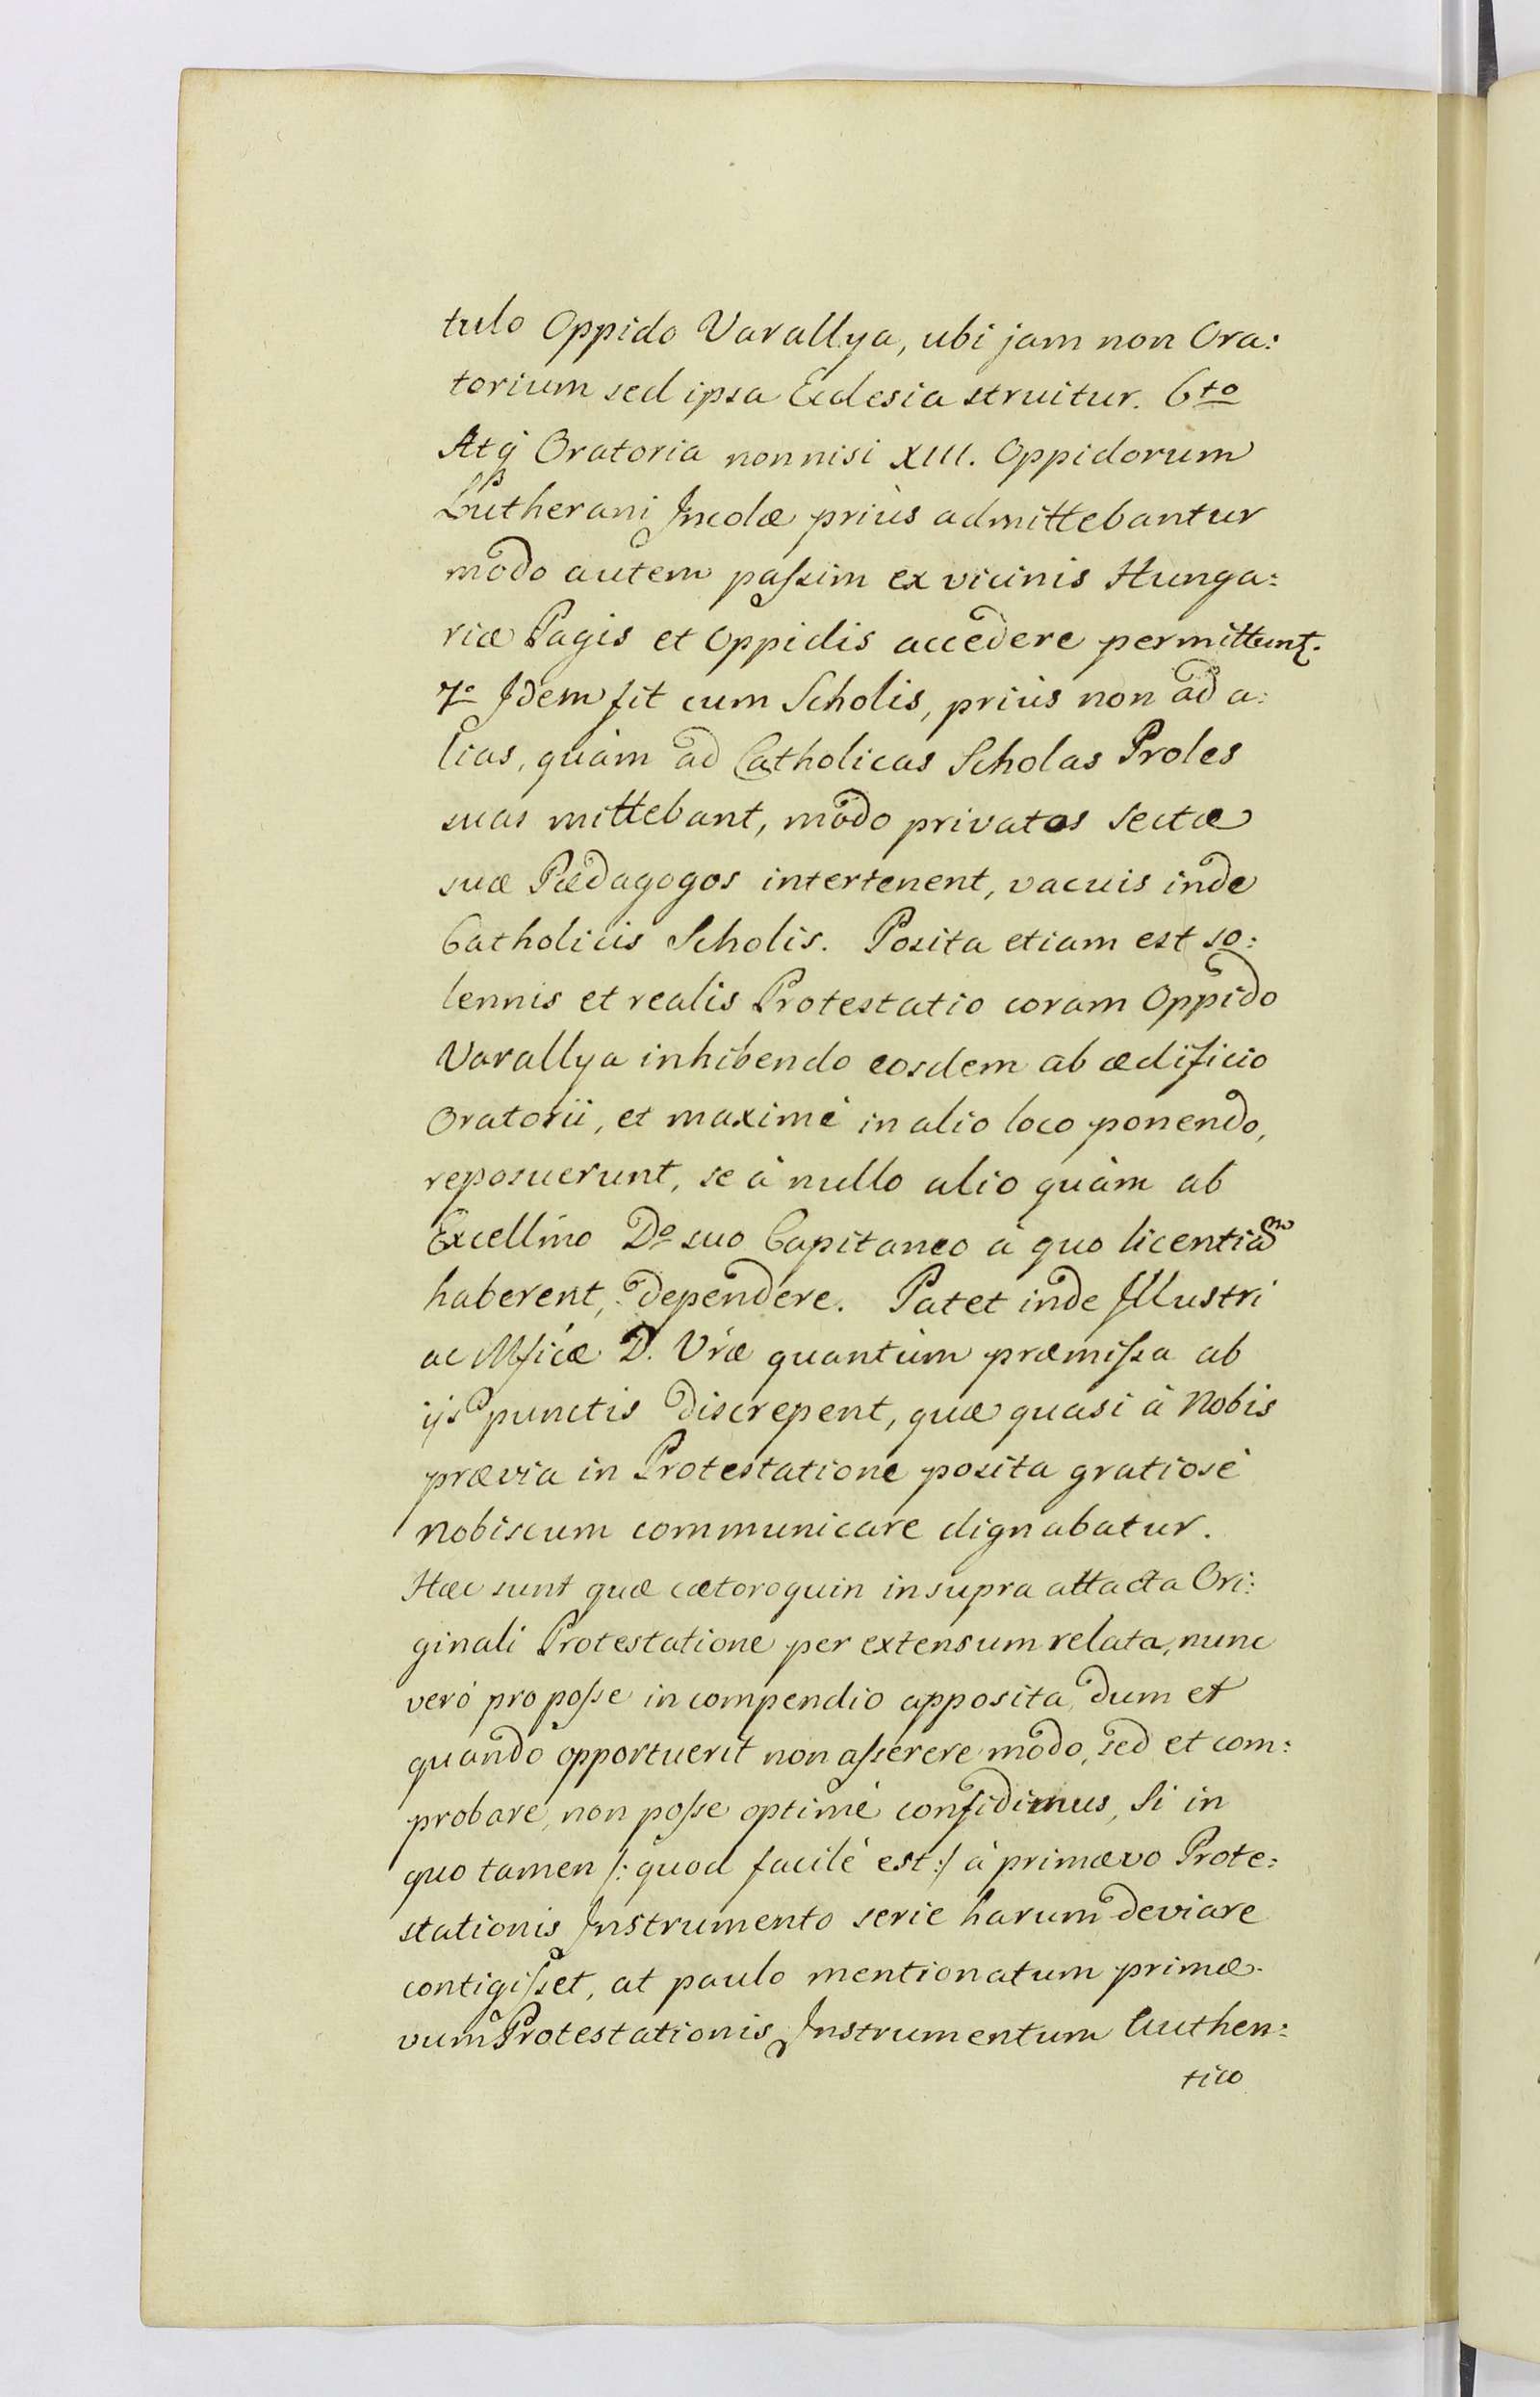 tulo Oppido Varallya, ubi jam non Ora:
torium sed ipsa Ecclesia struitur. 6to
Atq̀ Oratoria nonnisi XIII. Oppidorum
Lutherani Incolæ priùs admittebantur
modo autem paſsim ex vicinis Hunga:
riæ Pagis et Oppidis accedere permittunt.
7o Idem fit cum Scholis, priùs non ad a:
lias, quàm ad Catholicas Scholas Proles
suas mittebant, modo privatos sectæ
suæ Pædagogos intertenent, vacuis inde
Catholicis Scholis. Posita etiam est so:
lennis et realis Protestatio coram Oppido
Varallya inhibendo eosdem ab ædificio
Oratorii, et maximè in alio loco ponendo,
reposuerunt, se à nullo alio quàm ab
Excellmo Do suo Capitaneo à quo licentiam
haberent, dependere. Patet inde Illustri
ac Mficæ D. Vræ quantùm præmiſsa ab
ijs punctis discrepent, quæ quasi à Nobis
prævia in Protestatione posita gratiosè
nobiscum communicare dignabatur.
Hæc sunt quæ cætoroquin in supra attacta Ori:
ginali Protestatione per extensum relata, nunc
verò pro poſse in compendio apposita, dum et
quando opportuerit non aſserere modo, sed et com:
probare, non poſse optimè confidimus, Si in
quo tamen /: quod facilè est :/ à primævo Prote:
stationis Instrumento serie harum deviare
contigiſset, at paulo mentionatum primæ-
vum Protestationis Instrumentum Authen:
tico